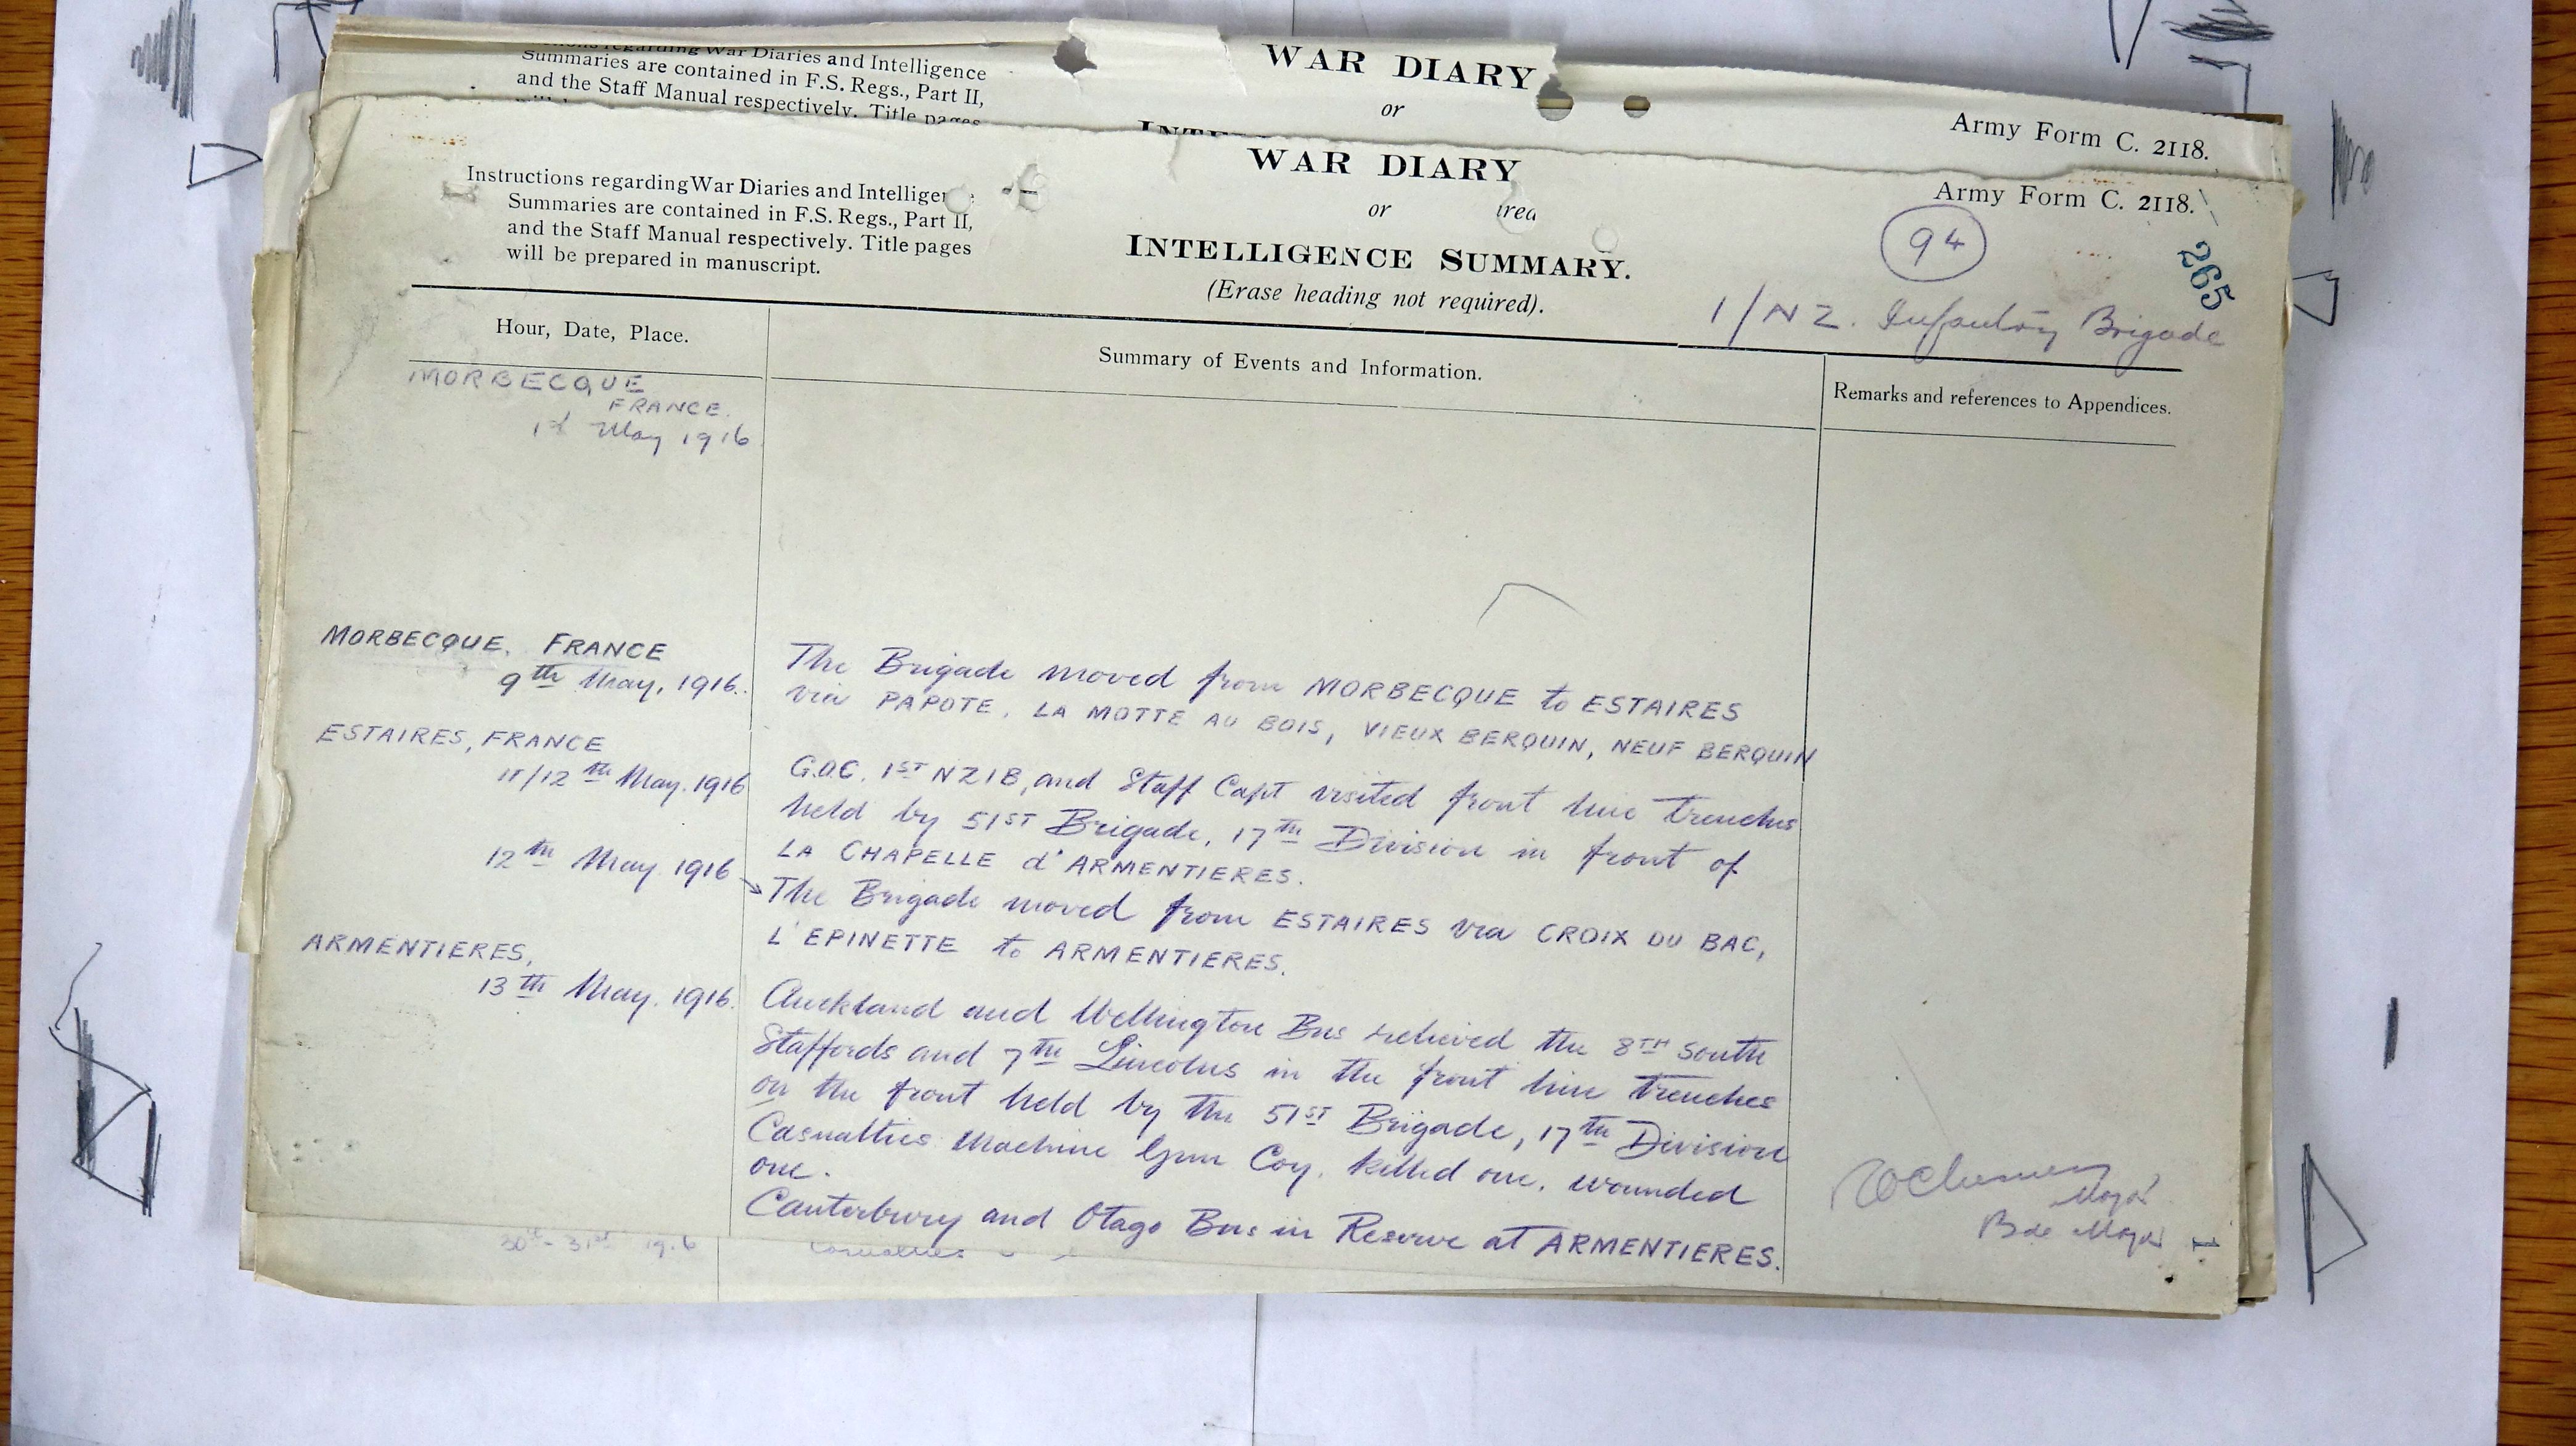 Summaries are contained in F.S. Regs., Part II,
and the Staff Manual respectively. Title pages
WAR DIARY
or
Army Form C. 2118.
Instructions regarding War Diaries and Intelligence
Summaries are contained in F.S. Regs., Part II,
and the Staff Manual respectively. Title pages
will be prepared in manuscript.
WAR DIARY
or
INTELLIGENCE SUMMARY.
(Erase heading not required).
Army Form C. 2118.
94
265
1/NZ. Infantry Brigade
Hour, Date, Place.
Summary of Events and Information.
Remarks and references to Appendices.
MORBECQUE
FRANCE.
1st May 1916
MORBECQUE. FRANCE
9th May, 1916.
The Brigade moved from MORBECQUE to ESTAIRES
via PAPOTE, LA MOTTE AU BOIS, VIEUX BERQUIN, NEUF BERQUIN
ESTAIRES, FRANCE
11/12th May. 1916
G.O.C. 1ST NZIB, and Staff Capt visited front line trenches
held by 51ST Brigade, 17th Division in front of
LA CHAPELLE d'ARMENTIERES.
12th May 1916
The Brigade moved from ESTAIRES via CROIX DU BAC,
L'EPINETTE to ARMENTIERES.
ARMENTIERES,
13th May. 1916.
Auckland and Wellington Bns relieved the 8TH South
Staffords and 7th Lincolns in the front line trenches
on the front held by the 51ST Brigade, 17th Division
Casualties Machine Gun Coy. killed one. wounded
one.
Canterbury and Otago Bns in Reserve at ARMENTIERES.
Major
Bde Major
1.
30th - 31st
Casualties